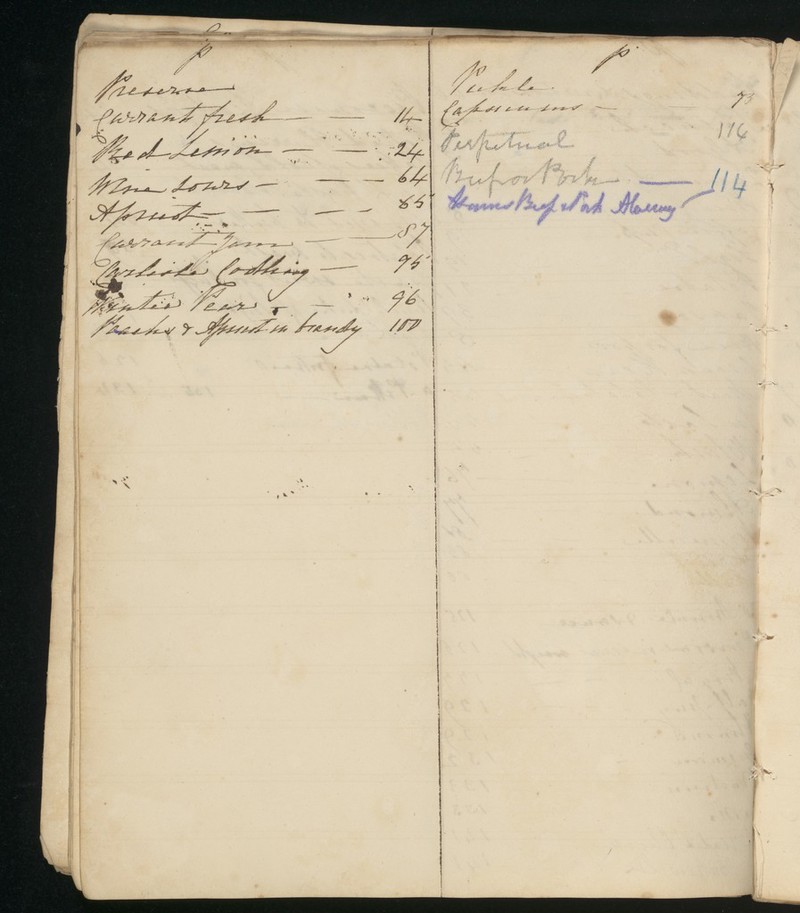 P
Preserve
Currant fresh — — 14
Red Lemon — — 24
Wine Sours — — — 64
Apricot — — — 85
Currant Jam — — 87
Carlisle Codling — 95
Winter Pear — 96
Peachs & Apricot in brandy 100
P
Pickle
Capsicums — 73
Perpetual 116
Beef or Pork — 114
Beef & Pork